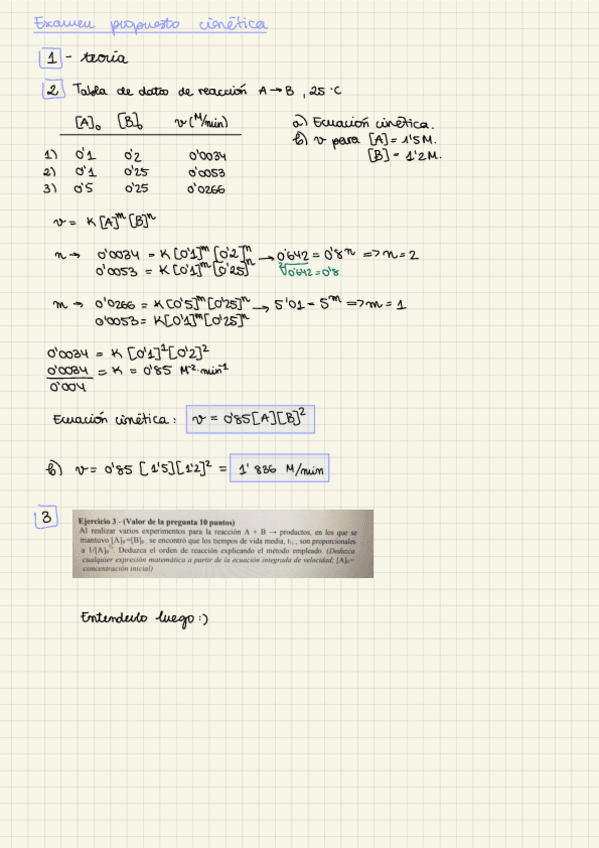 Examen propuesto cinética
1 - teoría
2 Tabla de datos de reacción A → B, 25 °C
[A]₀ [B]₀ v (M/min)
a) Ecuación cinética.
b) v para [A] = 1'5 M.
[B] = 1'2 M.
1) 0'1 0'2 0'0034
2) 0'1 0'25 0'0053
3) 0'5 0'25 0'0266
v = K [A]^m [B]^n
n → 0'0034 = K [0'1]^m [0'2]^n → 0'642 = 0'8^n => n = 2
0'0053 = K [0'1]^m [0'25]^n √0'642 = 0'8
m → 0'0266 = K [0'5]^m [0'25]^n → 5'01 = 5^m => m = 1
0'0053 = K [0'1]^m [0'25]^n
0'0034 = K [0'1]^1 [0'2]^2
0'0034 / 0'004 = K = 0'85 M^-2 · min^-1
Ecuación cinética: v = 0'85 [A][B]^2
b) v = 0'85 [1'5][1'2]^2 = 1'836 M/min
3
Ejercicio 3 - (Valor de la pregunta 10 puntos)
Al realizar varios experimentos para la reacción A + B → productos, en los que se
mantuvo [A]₀=[B]₀ se encontró que los tiempos de vida media, t½, son proporcionales
a 1/[A]₀. Deduzca el orden de reacción explicando el método empleado. (Deduzca
cualquier expresión matemática a partir de la ecuación integrada de velocidad; [A]₀=
concentración inicial)
Entenderlo luego :)